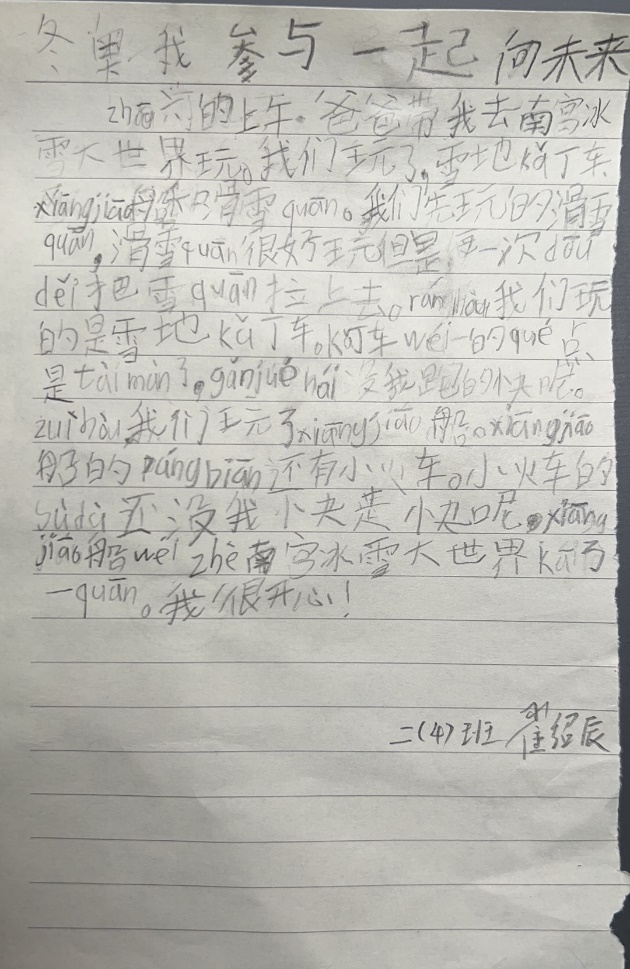 冬奥我参与一起向未来
的上午。爸爸带我去南宫冰
雪大世界玩。我们玩了,雪地kǎ丁车
xiāngjiāo船和滑雪quān。我们先玩的滑雪
quān,滑雪quān很好玩但是,每一次dōu
děi把雪quān拉上去。rán hòu我们玩
的是雪地kǎ丁车。kǎ丁车wéi一的quē点
是tài màn了。gǎnjué hái没我跑的快呢。
zuì hòu我们玩了xiāngjiāo船。xiāngjiāo
船的páng biān还有小火车。小火车的
sù dù还没我小夬走 呢。xiāng
jiāo船wéi zhè南宫冰雪大世界kāi了
一quān。我很开心!
二(4)班 崔绍辰